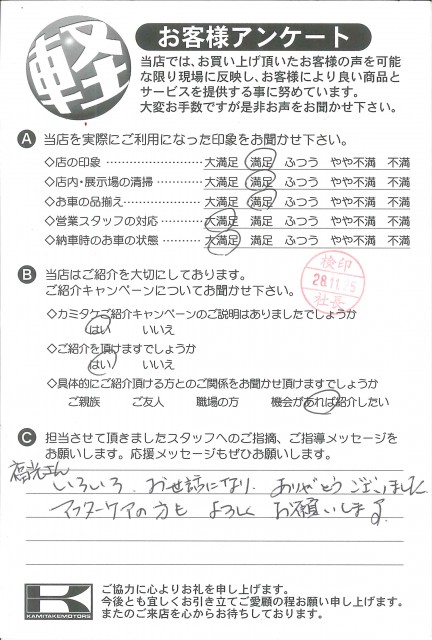 軽
お客様アンケート
当店では、お買い上げ頂いたお客様の声を可能
な限り現場に反映し、お客様により良い商品と
サービスを提供する事に努めています。
大変お手数ですが是非お声をお聞かせ下さい。
A 当店を実際にご利用になった印象をお聞かせ下さい。
◇店の印象 ……………………… 大満足 満足 ふつう やや不満 不満
◇店内・展示場の清掃 ………… 大満足 満足 ふつう やや不満 不満
◇お車の品揃え ………………… 大満足 満足 ふつう やや不満 不満
◇営業スタッフの対応 ………… 大満足 満足 ふつう やや不満 不満
◇納車時のお車の状態 ………… 大満足 満足 ふつう やや不満 不満
B 当店はご紹介を大切にしております。
ご紹介キャンペーンについてお聞かせ下さい。
検印
28.11.25
社長
◇カミタケご紹介キャンペーンのご説明はありましたでしょうか
はい いいえ
◇ご紹介を頂けますでしょうか
はい いいえ
◇具体的にご紹介頂ける方とのご関係をお聞かせ頂けますでしょうか
ご親族 ご友人 職場の方 機会があれば紹介したい
C 担当させて頂きましたスタッフへのご指摘、ご指導メッセージを
お願いします。応援メッセージもぜひお願いします。
さん
いろいろ、お世話になり、ありがとうございました
アフターケアの方も よろしく お願いします。
K
KAMITAKEMOTORS
ご協力に心よりお礼を申し上げます。
今後とも宜しくお引き立てご愛顧の程お願い申し上げます。
またのご来店を心からお待ちしております。